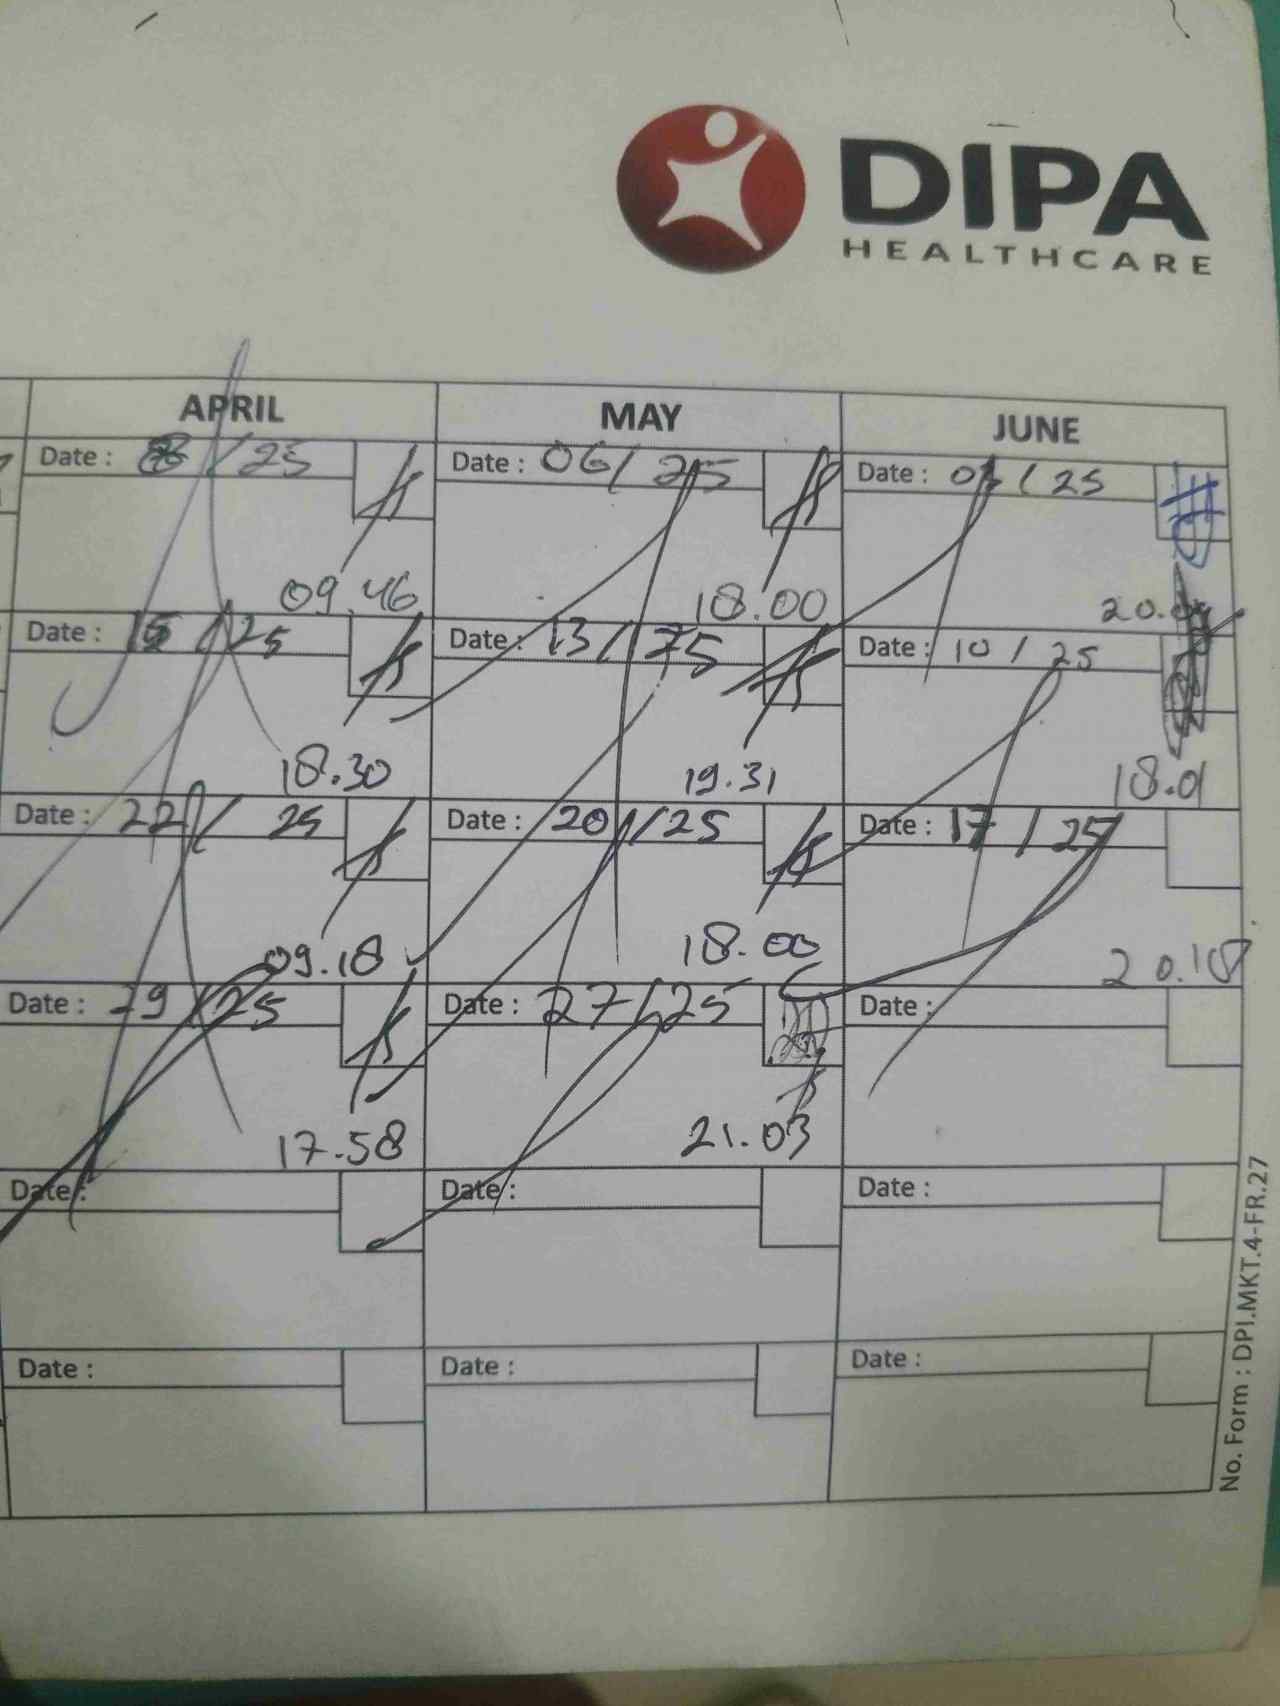 DIPA
HEALTHCARE
APRIL
Date : 8 / 25
09.46
Date : 15 / 25
18.30
Date : 22 / 25
09.18
Date : 29 / 25
17.58
Date :
Date :
MAY
Date : 06 / 25
18.00
Date : 13 / 25
19.31
Date : 20 / 25
18.00
Date : 27 / 25
21.03
Date :
Date :
JUNE
Date : / 25
Date : 10 / 25
18.01
Date : 17 / 25
20.18
Date :
Date :
Date :
No. Form : DPI.MKT.4-FR.27